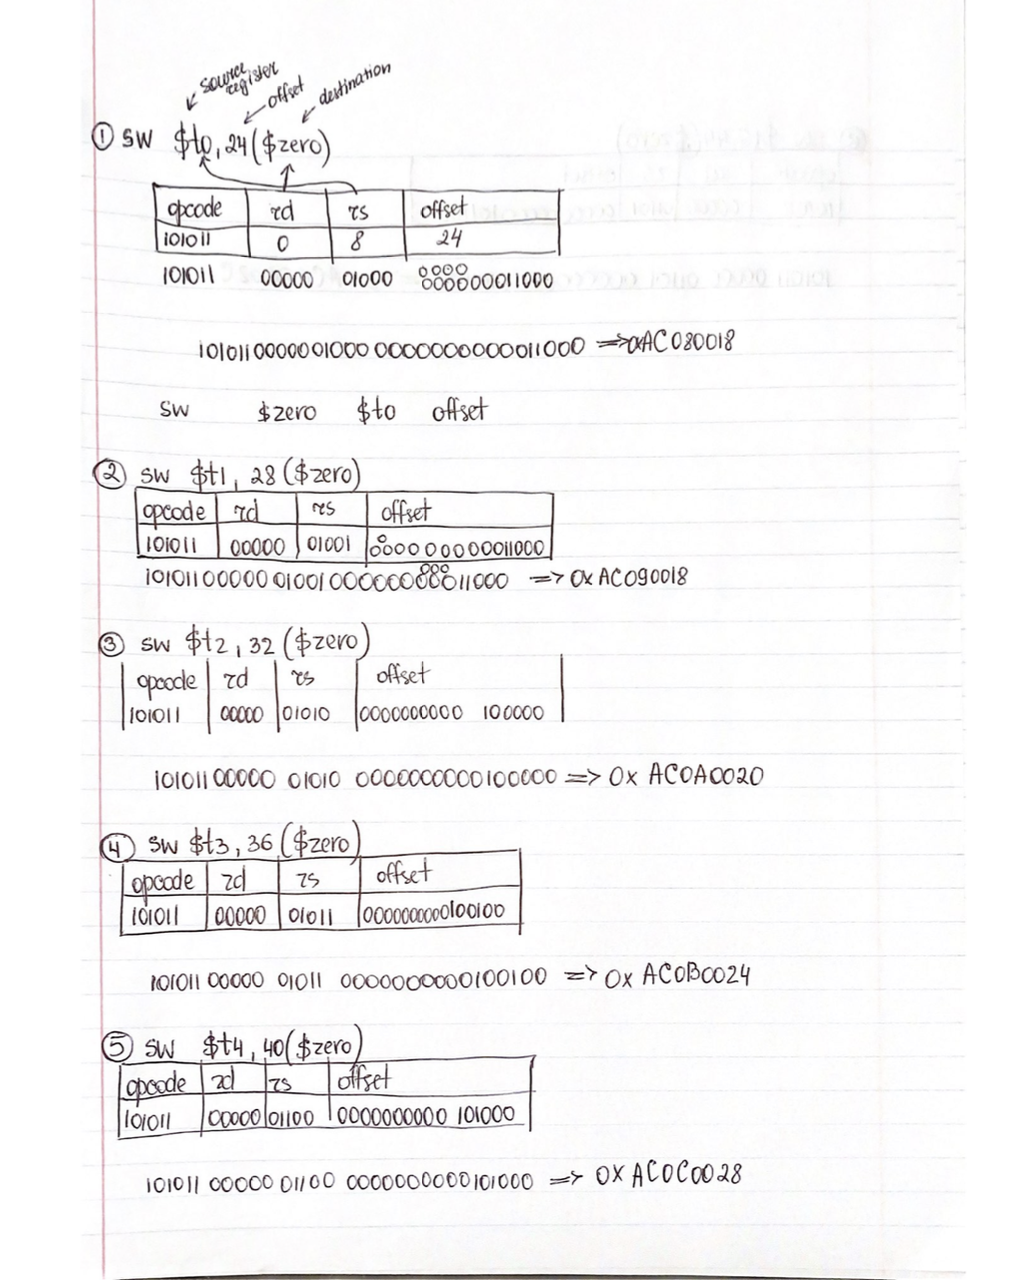 source register
offset
destination
① sw $t0, 24($zero)
opcode rd rs offset
101011 0 8 24
101011 00000 01000 0000000000011000
10101100000010000000000000011000 => 0xAC080018
sw $zero $t0 offset
② sw $t1, 28($zero)
opcode rd rs offset
101011 00000 01001 0000000000011000
101011 00000 01001 0000000000011000 => 0xAC090018
③ sw $t2, 32($zero)
opcode rd rs offset
101011 00000 01010 0000000000 100000
101011 00000 01010 0000000000100000 => 0x AC0A0020
④ sw $t3, 36($zero)
opcode rd rs offset
101011 00000 01011 0000000000100100
101011 00000 01011 0000000000100100 => 0x AC0B0024
⑤ sw $t4, 40($zero)
opcode rd rs offset
101011 00000 01100 0000000000 101000
101011 00000 01100 0000000000101000 => 0x AC0C0028